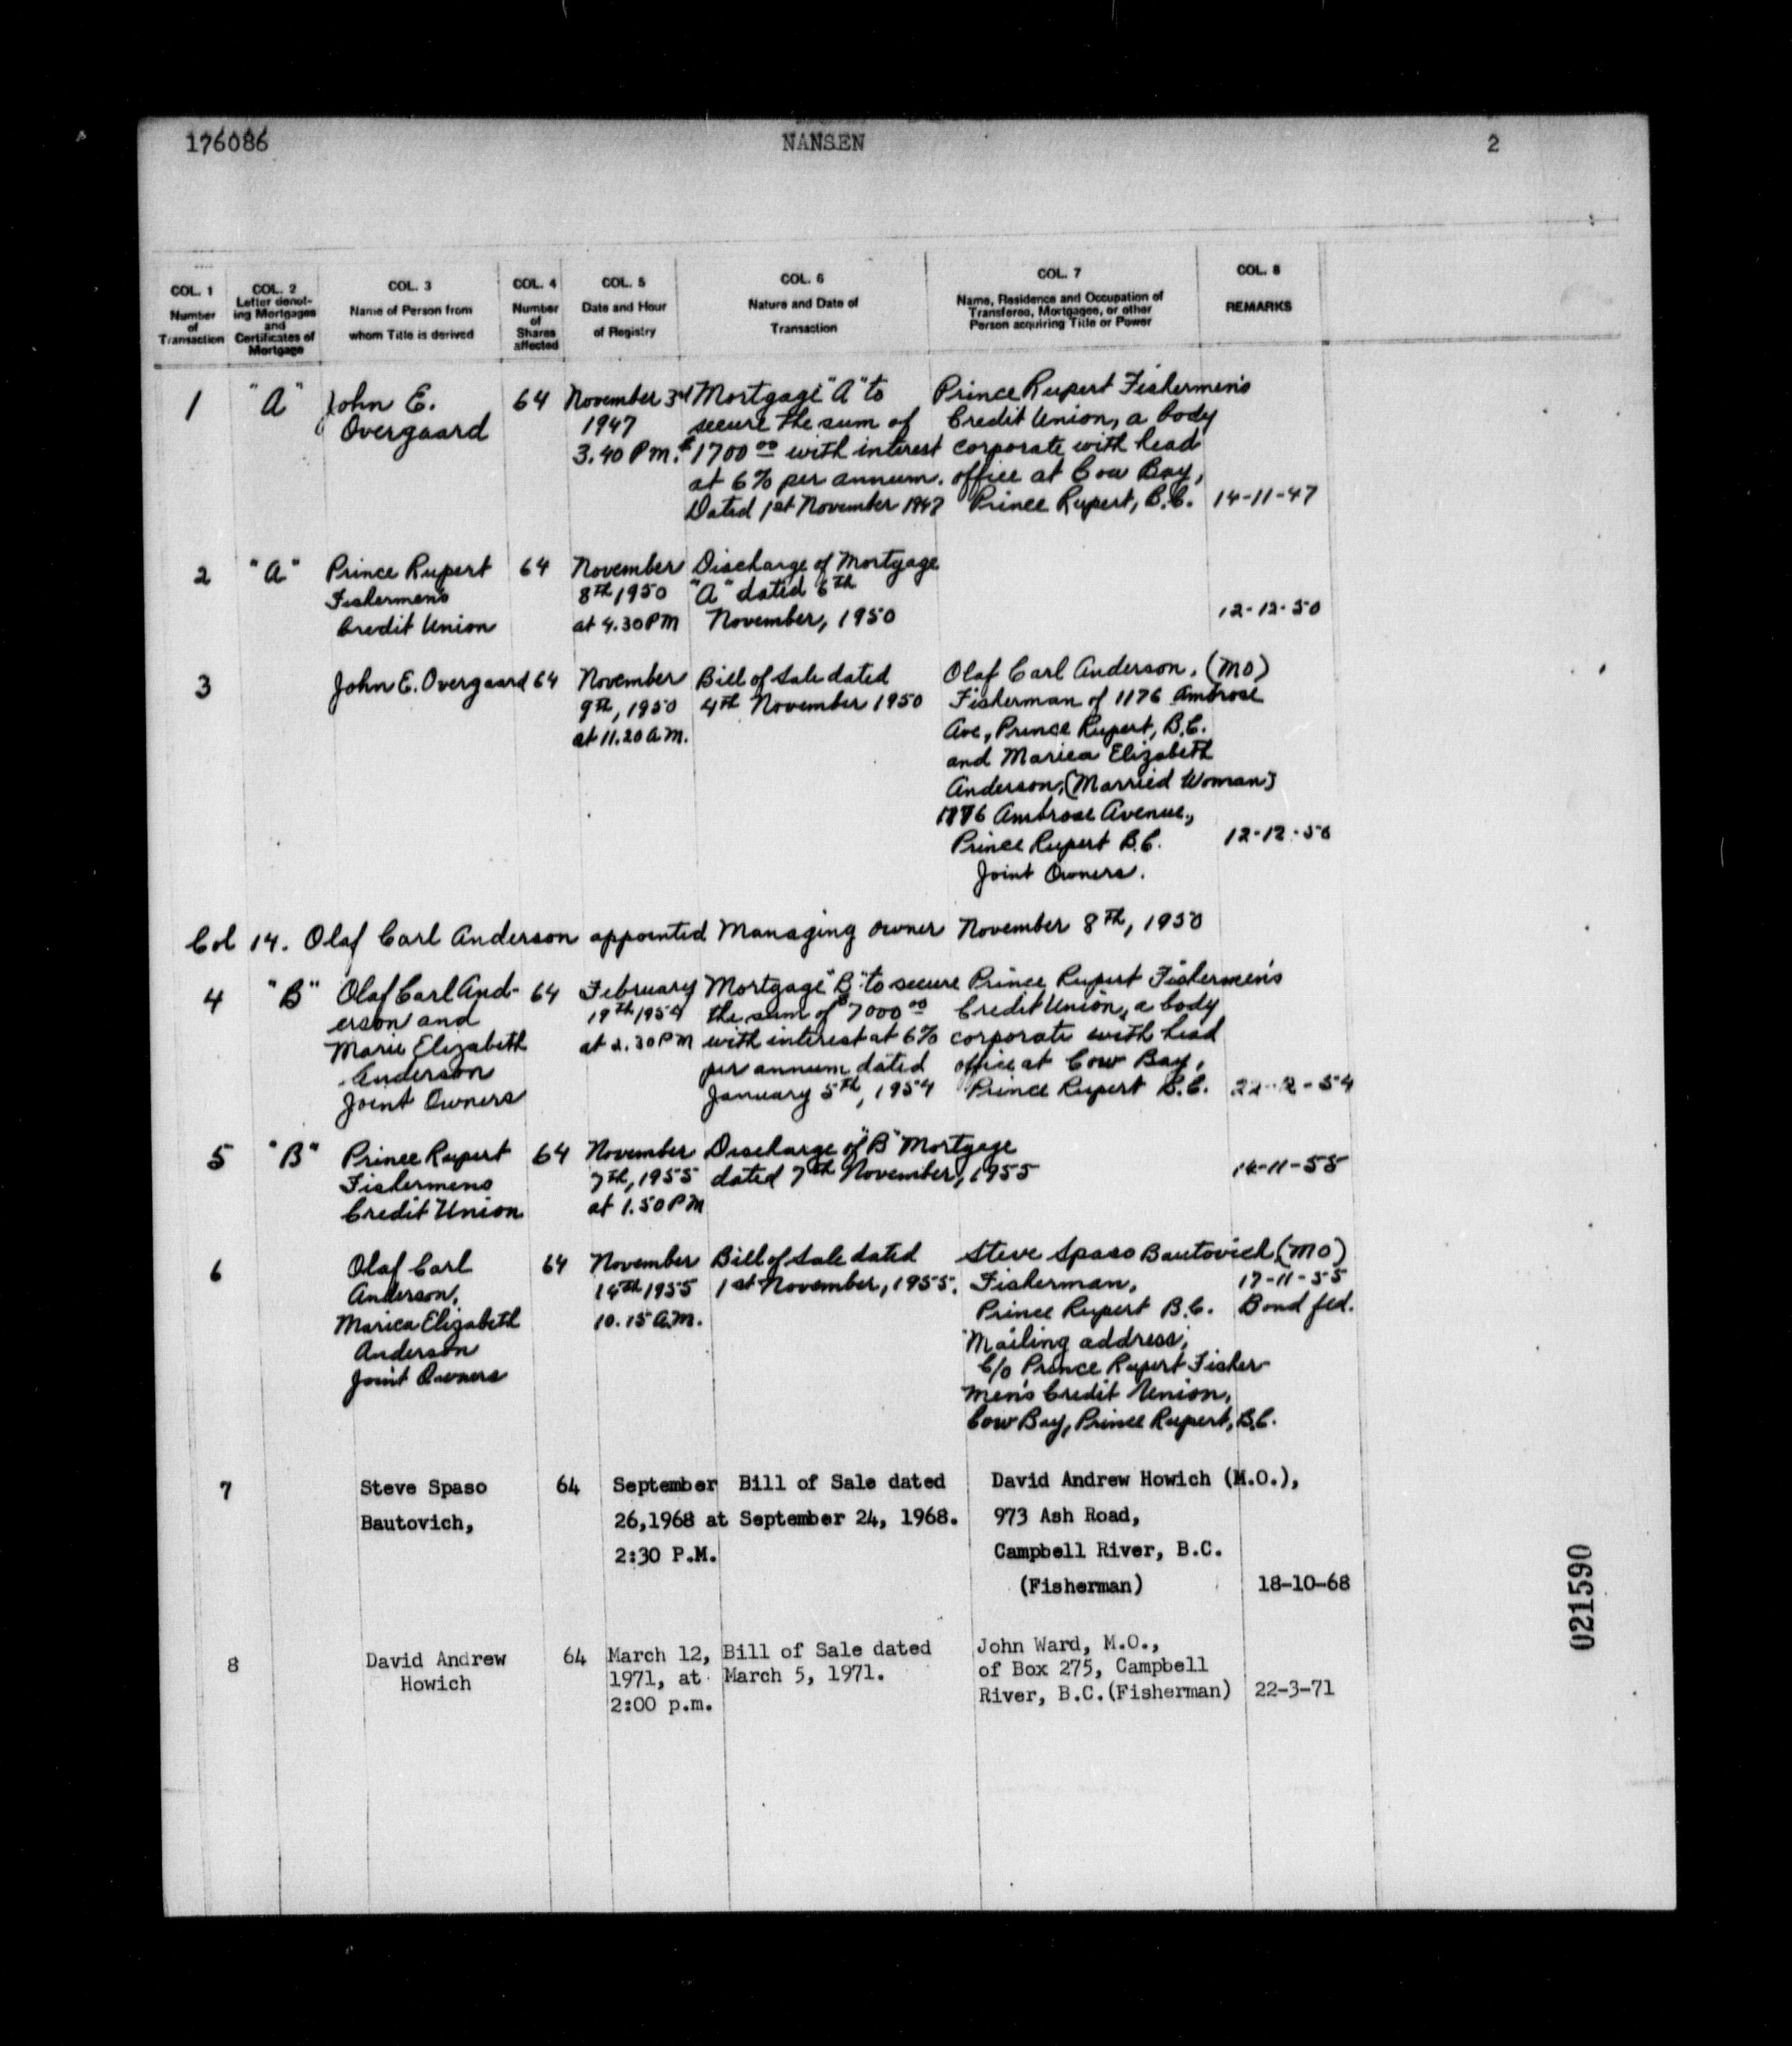 176086 NANSEN 2
COL. 1 Number of Transaction
COL. 2 Letter denoting Mortgages and Certificates of Mortgage
COL. 3 Name of Person from whom Title is derived
COL. 4 Number of Shares affected
COL. 5 Date and Hour of Registry
COL. 6 Nature and Date of Transaction
COL. 7 Name, Residence and Occupation of Transferee, Mortgagee, or other Person acquiring Title or Power
COL. 8 REMARKS
1 "A" John E. 64 November 3rd Mortgage "A" to Prince Rupert Fishermen's
Overgaard 1947 secure the sum of Credit Union, a body
3.40 P.M. $1700 00 with interest corporate with head
at 6% per annum. office at Cow Bay,
Dated 1st November 1947 Prince Rupert, B.C. 14-11-47
2 "A" Prince Rupert 64 November Discharge of Mortgage
Fishermen's 8th, 1950 "A" dated 6th
Credit Union at 4.30 PM November, 1950 12-12-50
3 John E. Overgaard 64 November Bill of Sale dated Olaf Carl Anderson, (MO)
9th, 1950 4th November 1950 Fisherman of 1176 Ambrose
at 11.20 A.M. Ave, Prince Rupert, B.C.
and Marica Elizabeth
Anderson, (Married Woman)
1176 Ambrose Avenue,
Prince Rupert B.C. 12-12-50
Joint Owners.
Col 14. Olaf Carl Anderson appointed Managing owner November 8th, 1950
4 "B" Olaf Carl And- 64 February Mortgage "B" to secure Prince Rupert Fishermen's
erson and 19th 1954 the sum of $7000 00 Credit Union, a body
Marie Elizabeth at 2.30 PM with interest at 6% corporate with head
Anderson per annum dated office at Cow Bay,
Joint Owners January 5th, 1954 Prince Rupert B.C. 22-2-54
5 "B" Prince Rupert 64 November Discharge of "B" Mortgage
Fishermens 7th, 1955 dated 7th November, 1955 14-11-55
Credit Union at 1.50 PM
6 Olaf Carl 64 November Bill of Sale dated Steve Spaso Bautovich (MO)
Anderson, 1955 1st November, 1955. Fisherman, 17-11-55
Marica Elizabeth 10.15 A.M. Prince Rupert B.C. Bond fld.
Anderson Mailing address;
Joint Owners C/o Prince Rupert Fisher-
men's Credit Union,
Cow Bay, Prince Rupert, B.C.
7 Steve Spaso 64 September Bill of Sale dated David Andrew Howich (M.O.),
Bautovich, 26,1968 at September 24, 1968. 973 Ash Road,
2:30 P.M. Campbell River, B.C.
(Fisherman) 18-10-68
8 David Andrew 64 March 12, Bill of Sale dated John Ward, M.O.,
Howich 1971, at March 5, 1971. of Box 275, Campbell
2:00 p.m. River, B.C.(Fisherman) 22-3-71
021590